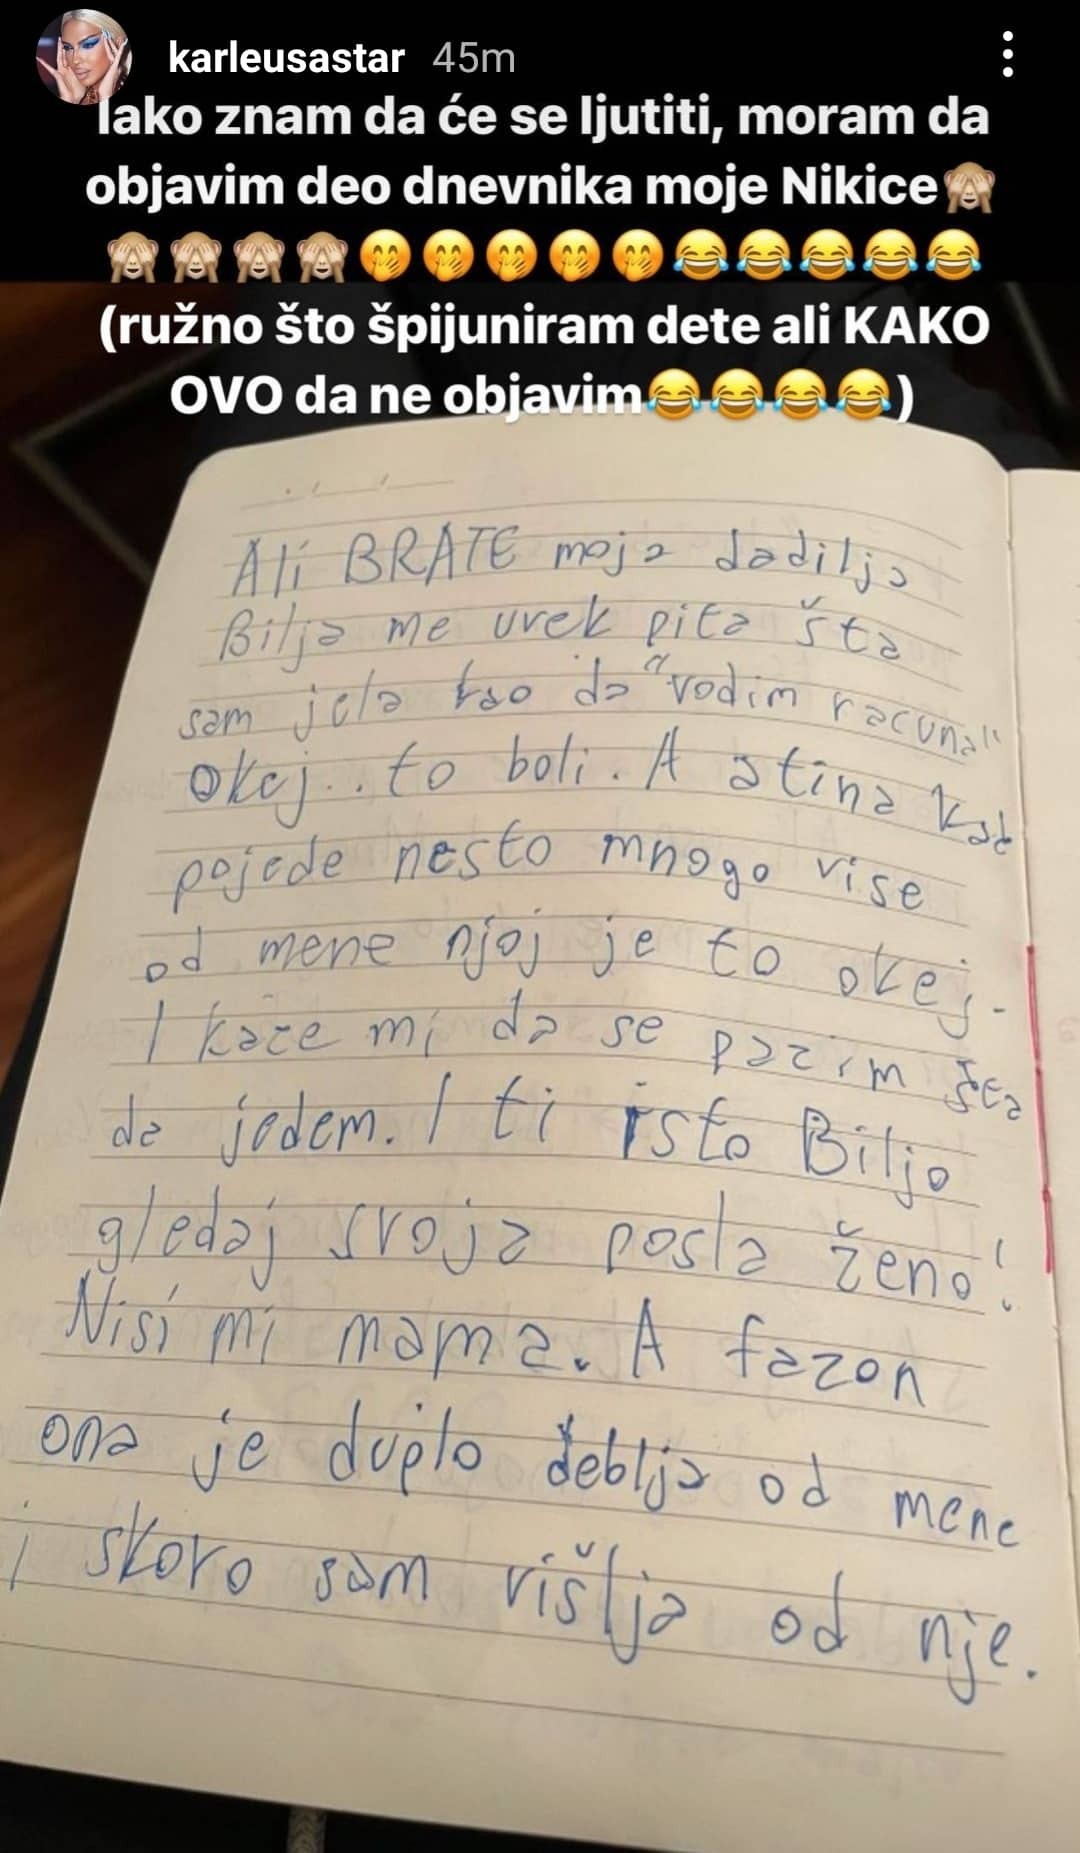 karleusastar 45m
Iako znam da će se ljutiti, moram da
objavim deo dnevnika moje Nikice🙈
🙈🙈🙈🙈🤭🤭🤭🤭🤭😂😂😂😂😂
(ružno što špijuniram dete ali KAKO
OVO da ne objavim😂😂😂😂)
Ali BRATE moja dadilja
Bilja me uvek pita šta
sam jela kao da "vodim racuna"
okej.. to boli. A atina kad
pojede nesto mnogo vise
od mene njoj je to okej.
I kaze mi da se pazim šta
da jedem. I ti isto Biljo
gledaj svoja posla ženo!
Nisi mi mama. A fazon
ona je duplo deblja od mene
i skoro sam višlja od nje.